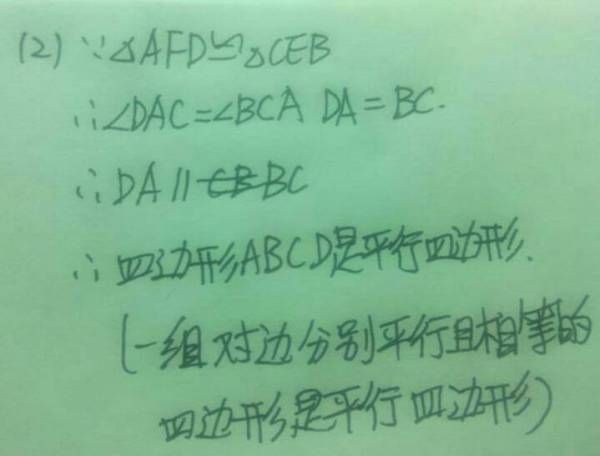 (2) ∵△AFD≌△CEB
∴∠DAC=∠BCA DA=BC.
∴DA∥BC
∴四边形ABCD是平行四边形.
(一组对边分别平行且相等的
四边形是平行四边形)